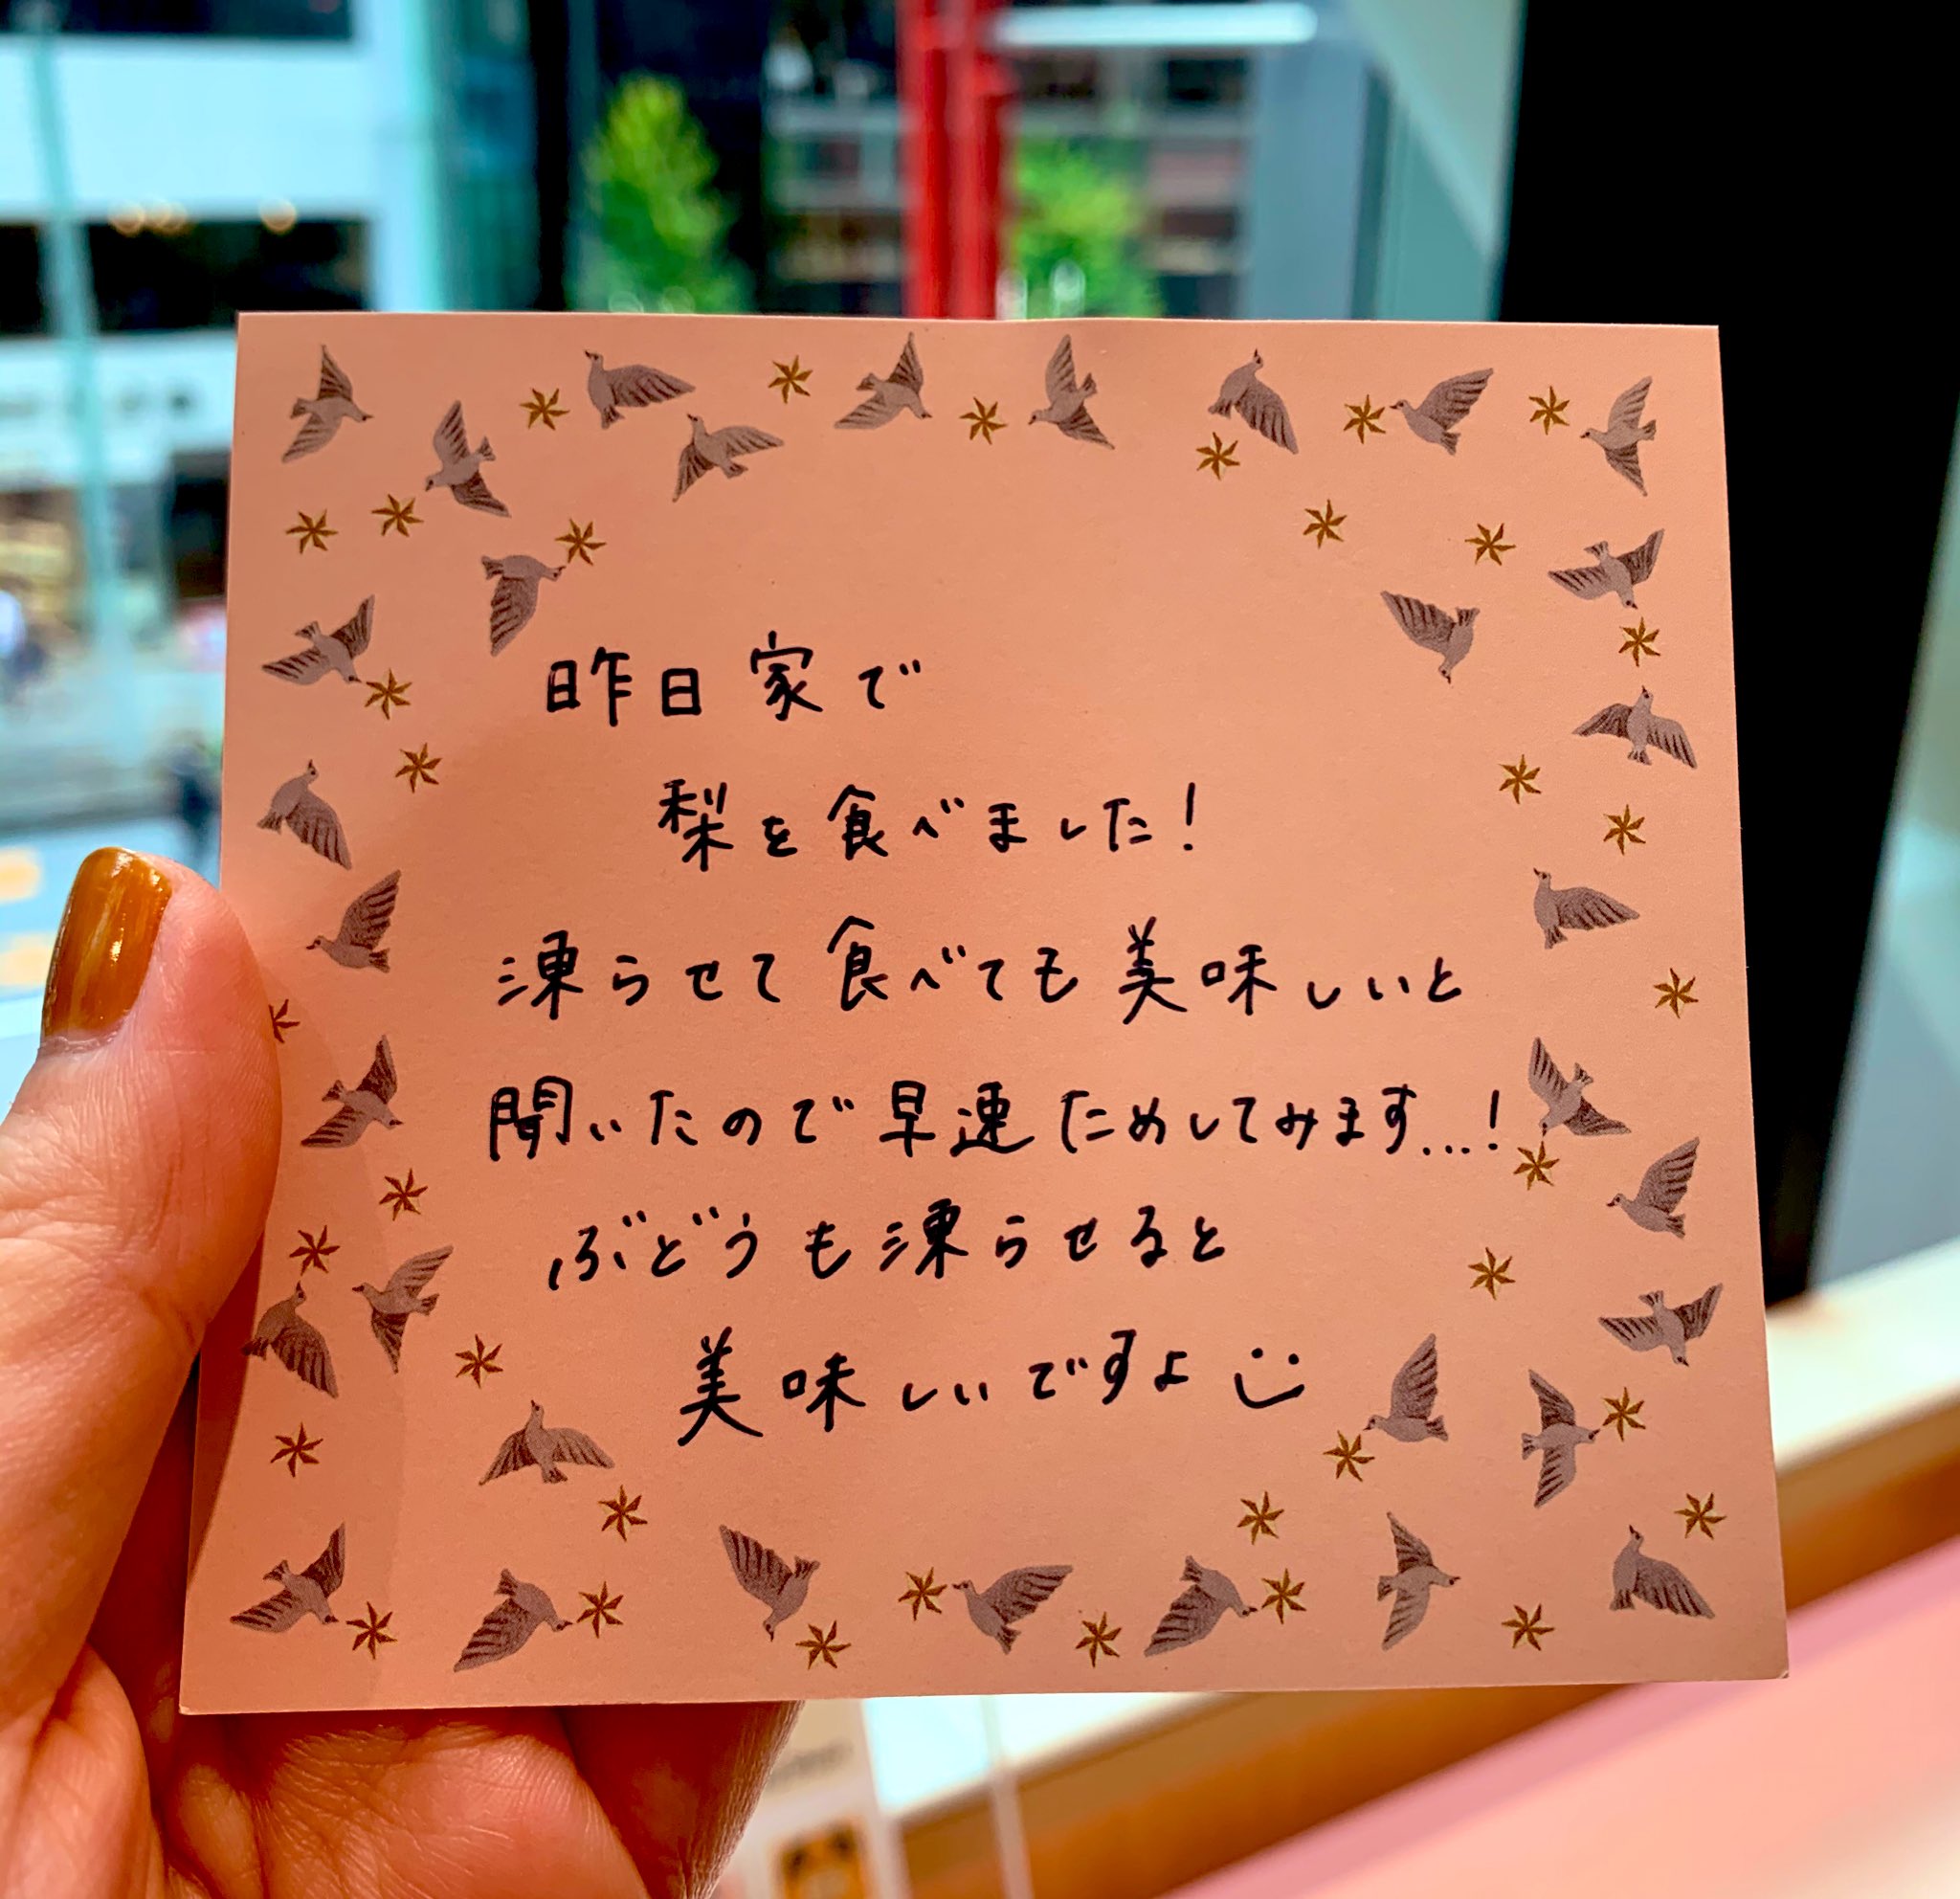 昨日家で
梨を食べました!
凍らせて食べても美味しいと
聞いたので早速ためしてみます...!
ぶどうも凍らせると
美味しいですよ